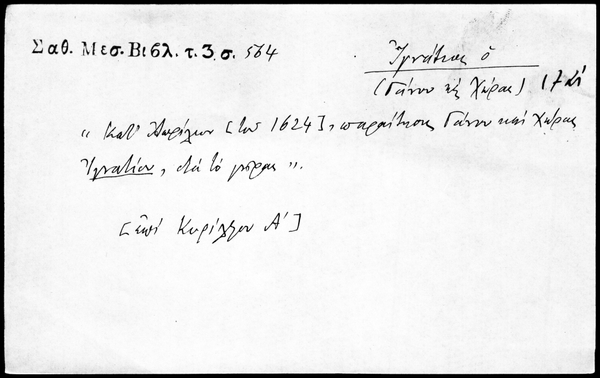 Σαθ. Μεσ. Βιβλ. τ. 3, σ. 564
Ἰγνάτιος ὁ
(Γάνου καὶ Χώρας) 17ος
"Κατ' Ἀπρίλιον [τοῦ 1624], παραίτησις Γάνου καὶ Χώρας
Ἰγνατίου, διὰ τὸ γῆρας".
[ἐπὶ Κυρίλλου Α']